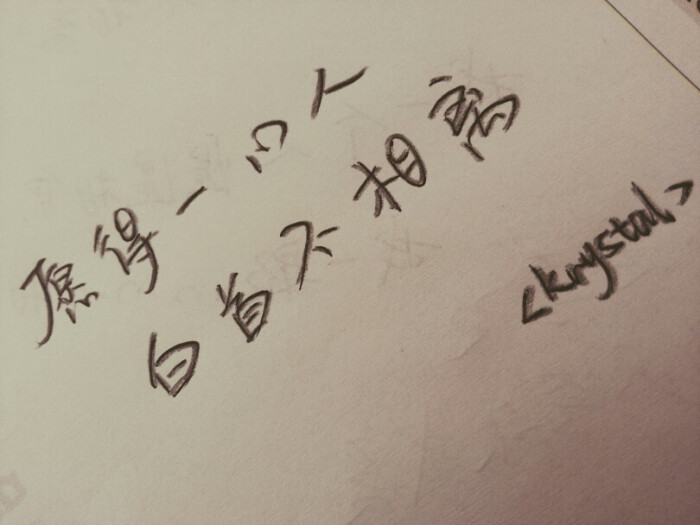 愿得一心人
白首不相离
<krystal>